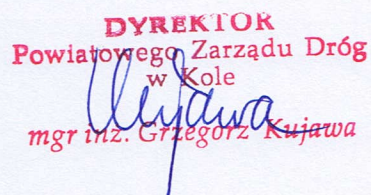 DYREKTOR
Powiatowego Zarządu Dróg
w Kole
Kujawa
mgr inż. Grzegorz Kujawa